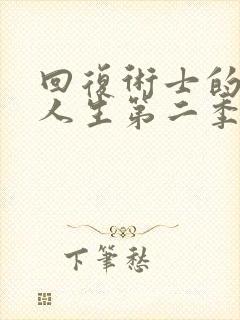 回復術士的
人生第二季
下筆愁